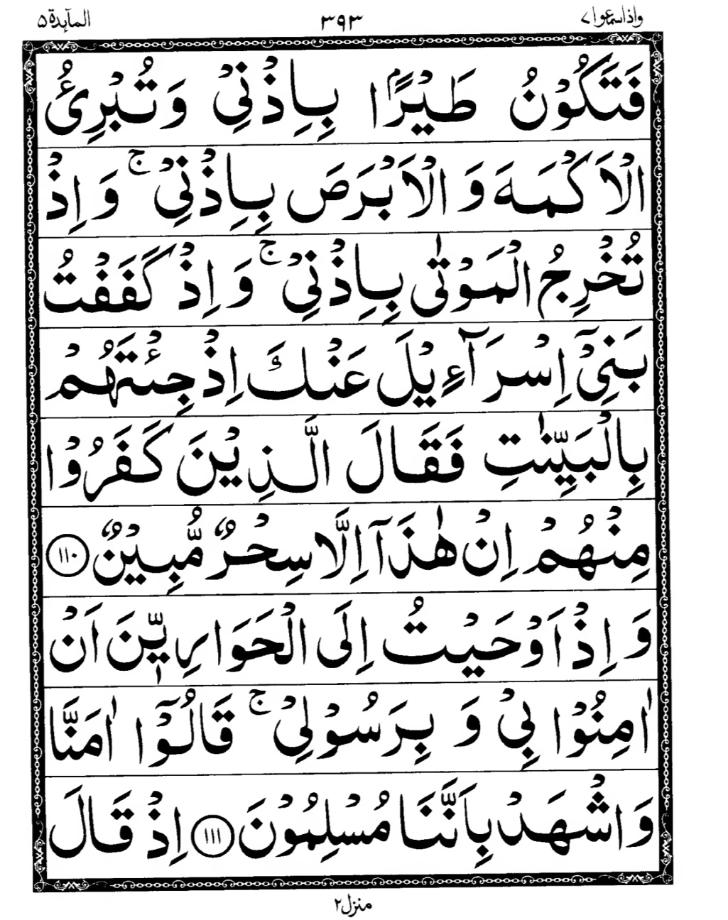 واذاسمعوا ٧ ٣٩٣ المآىدة ٥
فَتَكُوْنُ طَيْرًۢا بِاِذْنِيْ وَتُبْرِئُ
الْاَكْمَهَ وَ الْاَبْرَصَ بِاِذْنِيْ ۚ وَ اِذْ
تُخْرِجُ الْمَوْتٰى بِاِذْنِيْ ۚ وَ اِذْ كَفَفْتُ
بَنِيْۤ اِسْرَآءِيْلَ عَنْكَ اِذْ جِئْتَهُمْ
بِالْبَيِّنٰتِ فَقَالَ الَّذِيْنَ كَفَرُوْا
مِنْهُمْ اِنْ هٰذَاۤ اِلَّا سِحْرٌ مُّبِيْنٌ ١١٠
وَ اِذْ اَوْحَيْتُ اِلَى الْحَوَارِيّٖنَ اَنْ
اٰمِنُوْا بِيْ وَ بِرَسُوْلِيْ ۚ قَالُوْۤا اٰمَنَّا
وَ اشْهَدْ بِاَنَّنَا مُسْلِمُوْنَ ١١١ اِذْ قَالَ
منزل ٢